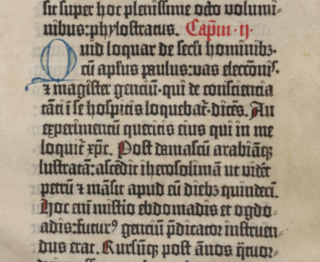 sit super hoc plenissime octo volumi-
nibus: phylostratus. Capitulum .ii.
Quid loquar de secli hominibꝫ.
cū apłus paulus: vas electōnis.
⁊ magister genciū· qui de consciencia
tāti ī se hospitis loquebat᷑· dicēs. An
experimentū queritis eius qui in me
loquit᷑ xp̄c. Post damascū arabiāqꝫ
lustratā: ascēdit iherosolimā ut vidēt
petrū ⁊ māsit apud eū diebꝫ quindeci.
Hoc enī misterio ebdomadis et ogdo-
adis: futurꝰ genciū p̄dicator instruen-
dus erat. Rursūqꝫ post ānos q̄tuor-